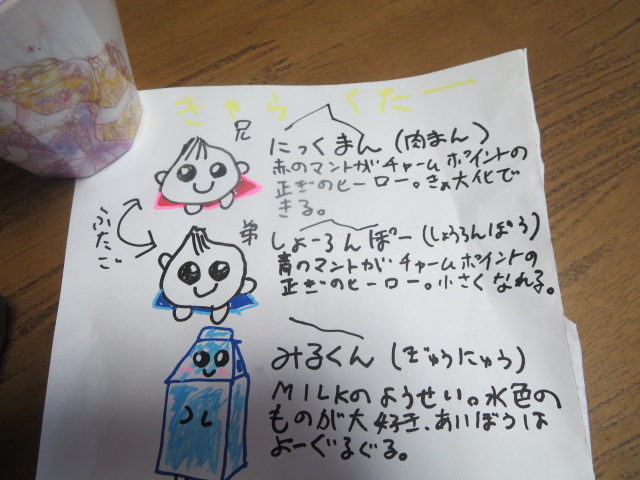 きゃらくたー
兄
にっくまん(肉まん)
赤のマントがチャームポイントの
正ぎのヒーロー。きょ大化で
きる。
ふたご
弟
しょーろんぽー(しょうろんぽう)
青のマントがチャームポイントの
正ぎのヒーロー。小さくなれる。
みるくん(ぎゅうにゅう)
MILKのようせい。水色の
ものが大好き、あいぼうは
よーぐるぐる。